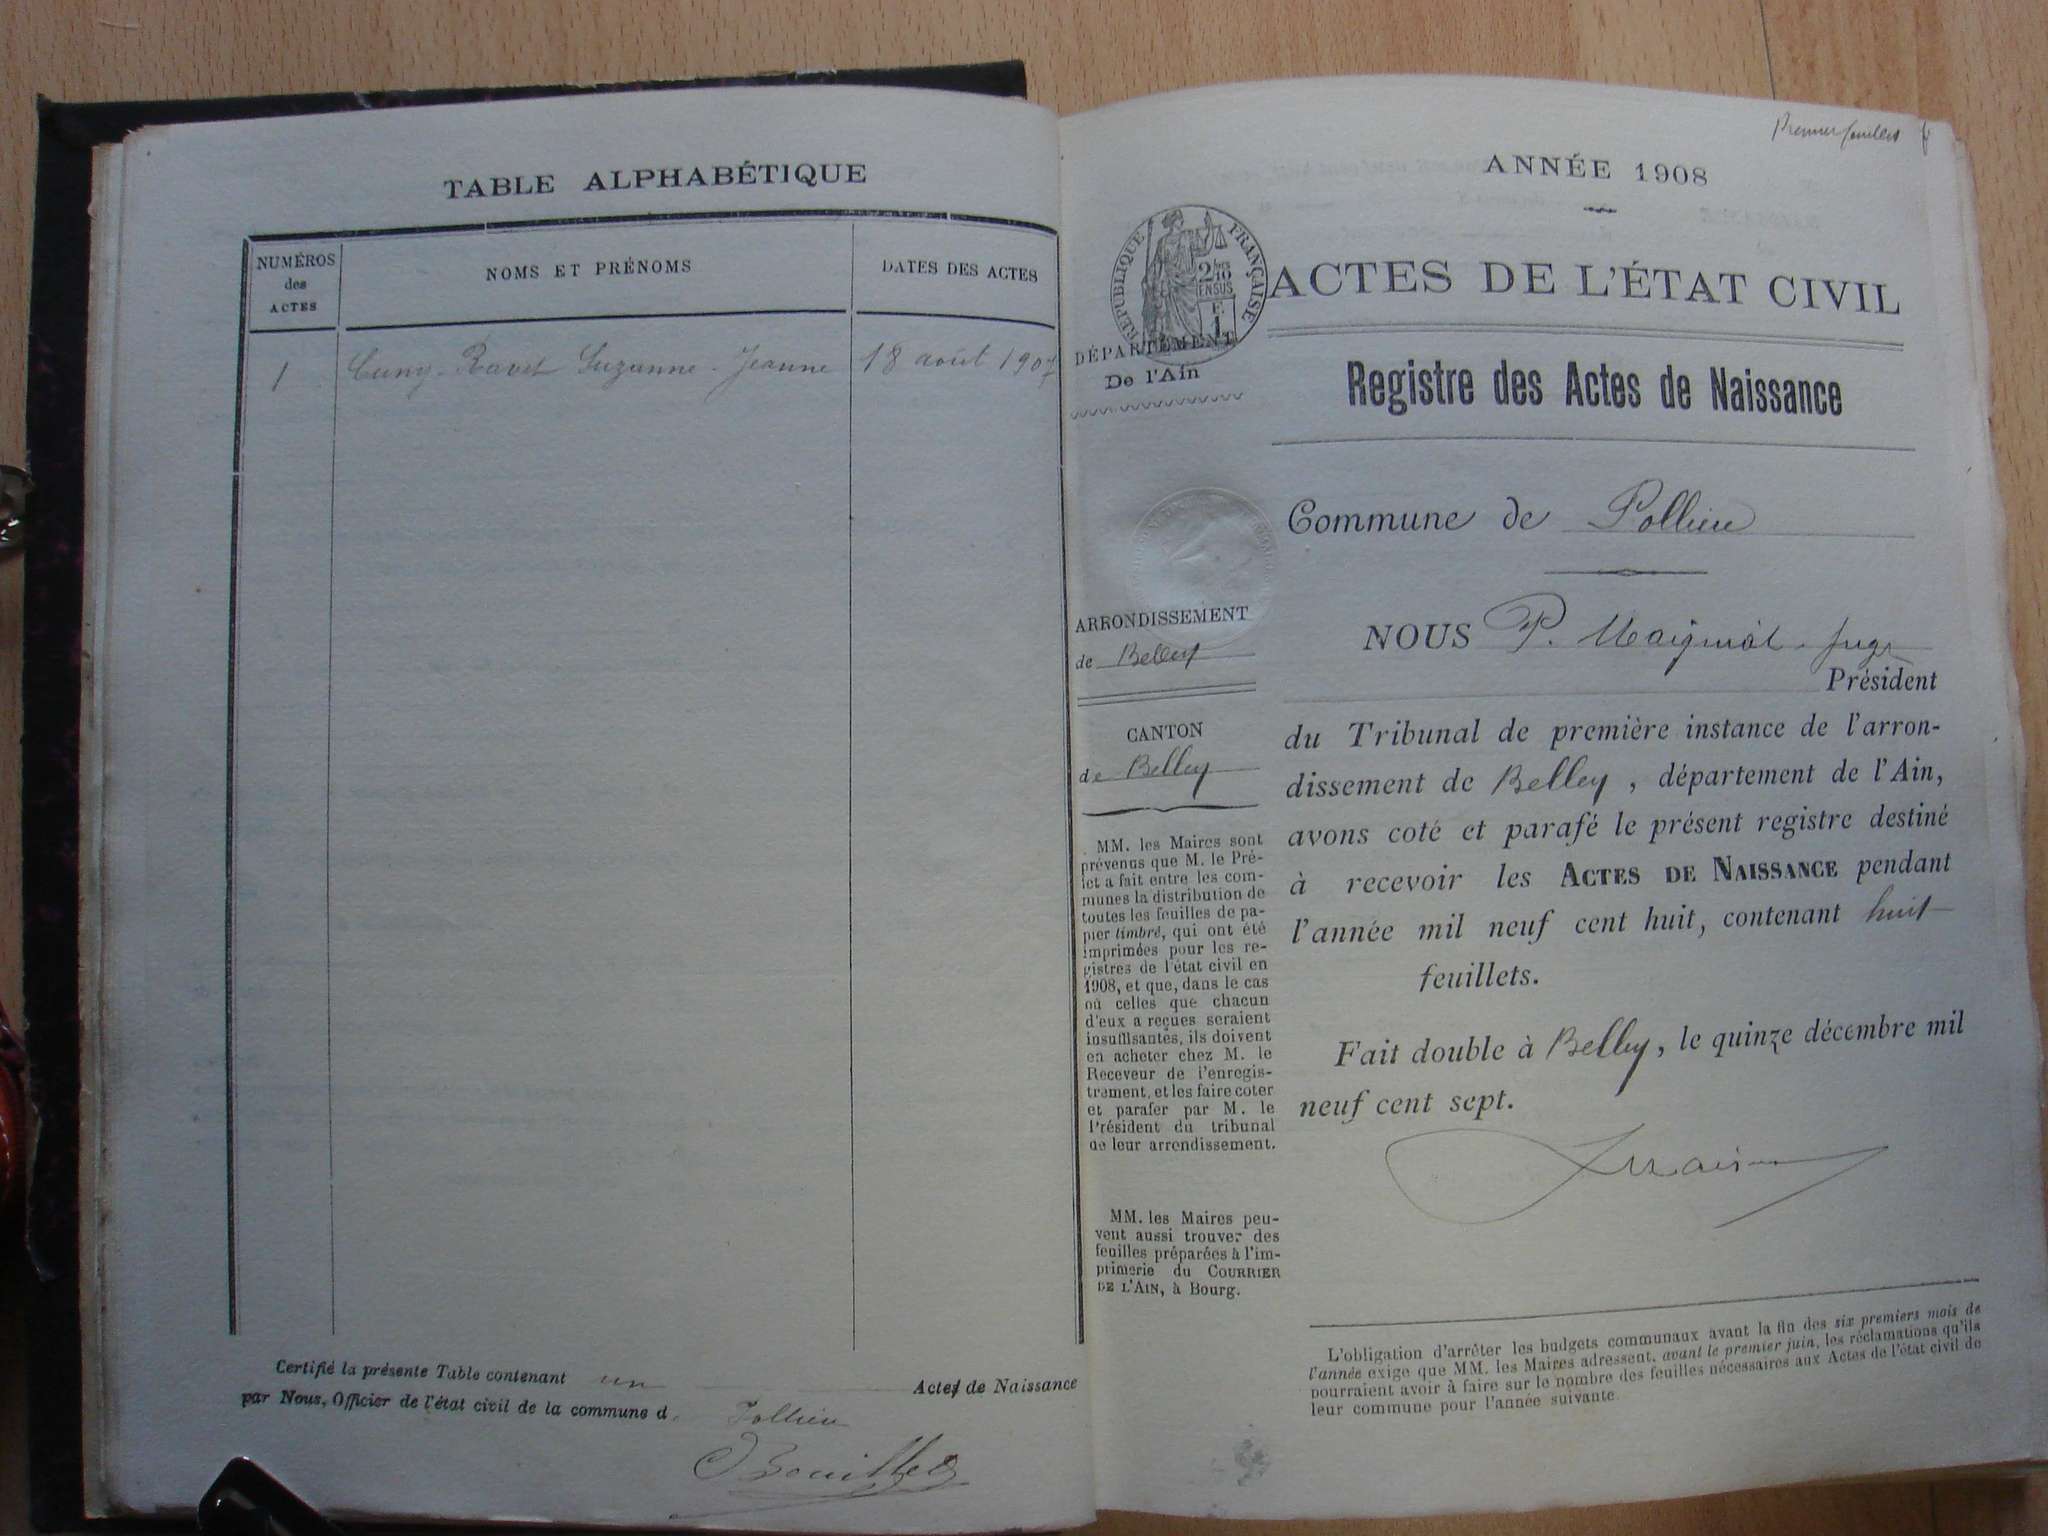 TABLE ALPHABÉTIQUE
NUMÉROS
des
ACTES
NOMS ET PRÉNOMS
DATES DES ACTES
1
Cuny-Ravet Suzanne-Jeanne
18 août 1907
Certifié la présente Table contenant un Actes de Naissance
par Nous, Officier de l'état civil de la commune d. Pollieu
Premier feuillet
ANNÉE 1908
RÉPUBLIQUE FRANÇAISE
ACTES DE L'ÉTAT CIVIL
DÉPARTEMENT
De l'Ain
Registre des Actes de Naissance
Commune de Pollieu
ARRONDISSEMENT
de Belley
CANTON
de Belley
MM. les Maires sont
prévenus que M. le Pré-
fet a fait entre les com-
munes la distribution de
toutes les feuilles de pa-
pier timbré, qui ont été
imprimées pour les re-
gistres de l'état civil en
1908, et que, dans le cas
où celles que chacun
d'eux a reçues seraient
insuffisantes, ils doivent
en acheter chez M. le
Receveur de l'enregis-
trement, et les faire coter
et parafer par M. le
Président du tribunal
de leur arrondissement.
MM. les Maires peu-
vent aussi trouver des
feuilles préparées à l'im-
primerie du COURRIER
DE L'AIN, à Bourg.
NOUS P. juge
Président
du Tribunal de première instance de l'arron-
dissement de Belley, département de l'Ain,
avons coté et parafé le présent registre destiné
à recevoir les ACTES DE NAISSANCE pendant
l'année mil neuf cent huit, contenant huit
feuillets.
Fait double à Belley, le quinze décembre mil
neuf cent sept.
L'obligation d'arrêter les budgets communaux avant la fin des six premiers mois de
l'année exige que MM. les Maires adressent, avant le premier juin, les réclamations qu'ils
pourraient avoir à faire sur le nombre des feuilles nécessaires aux Actes de l'état civil de
leur commune pour l'année suivante.